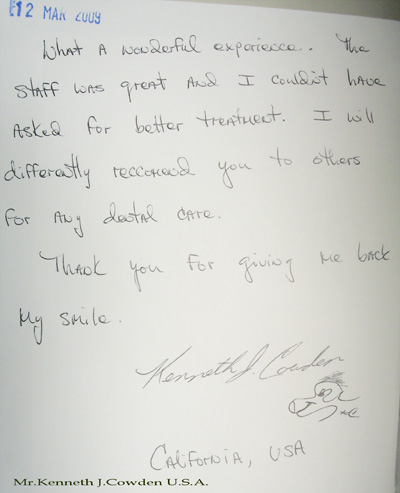 12 MAR 2009
What a wonderful experience. The
staff was great and I couldn't have
asked for better treatment. I will
differently reccomend you to others
for any dental care.
Thank you for giving me back
my smile.
Kenneth J. Cowden
California, USA
Mr.Kenneth J.Cowden U.S.A.